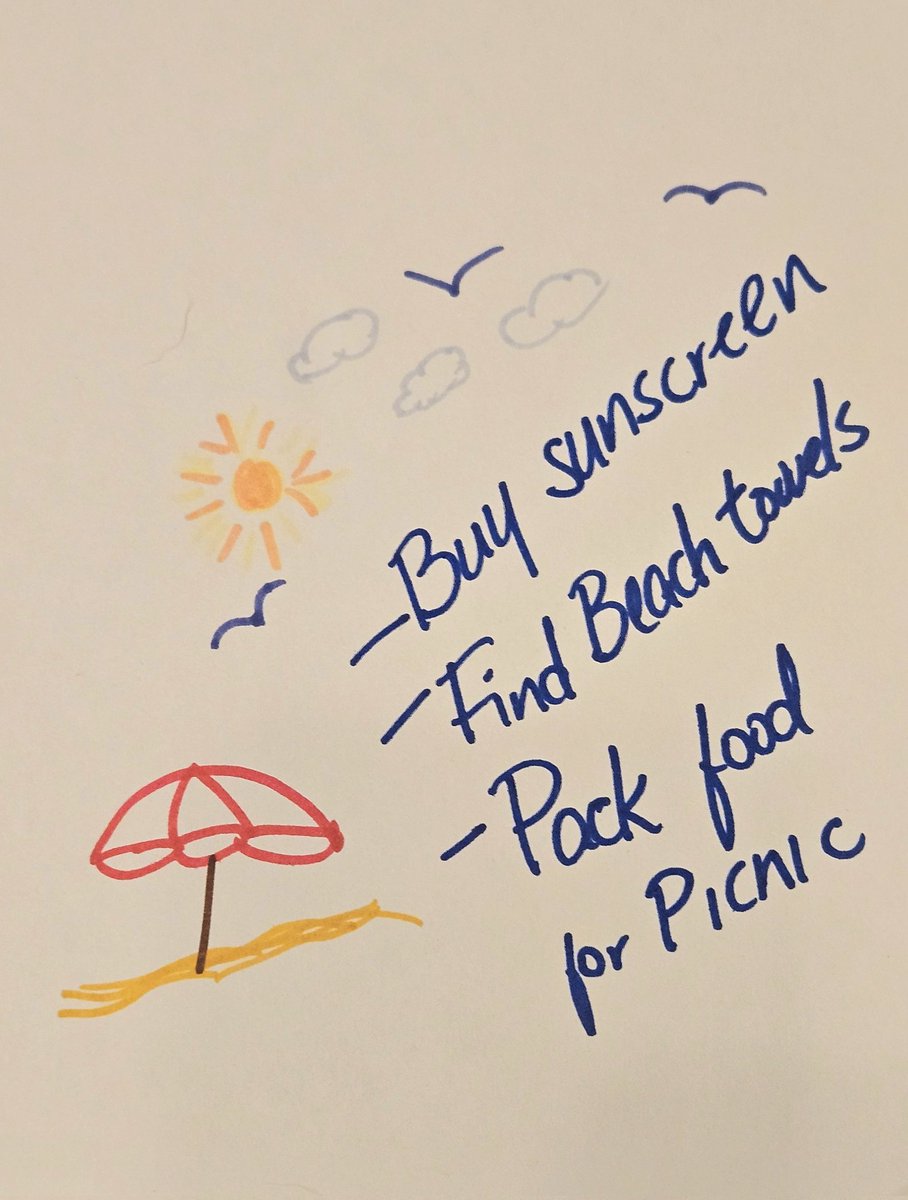 - Buy sunscreen
- Find Beach towels
- Pack food
for Picnic